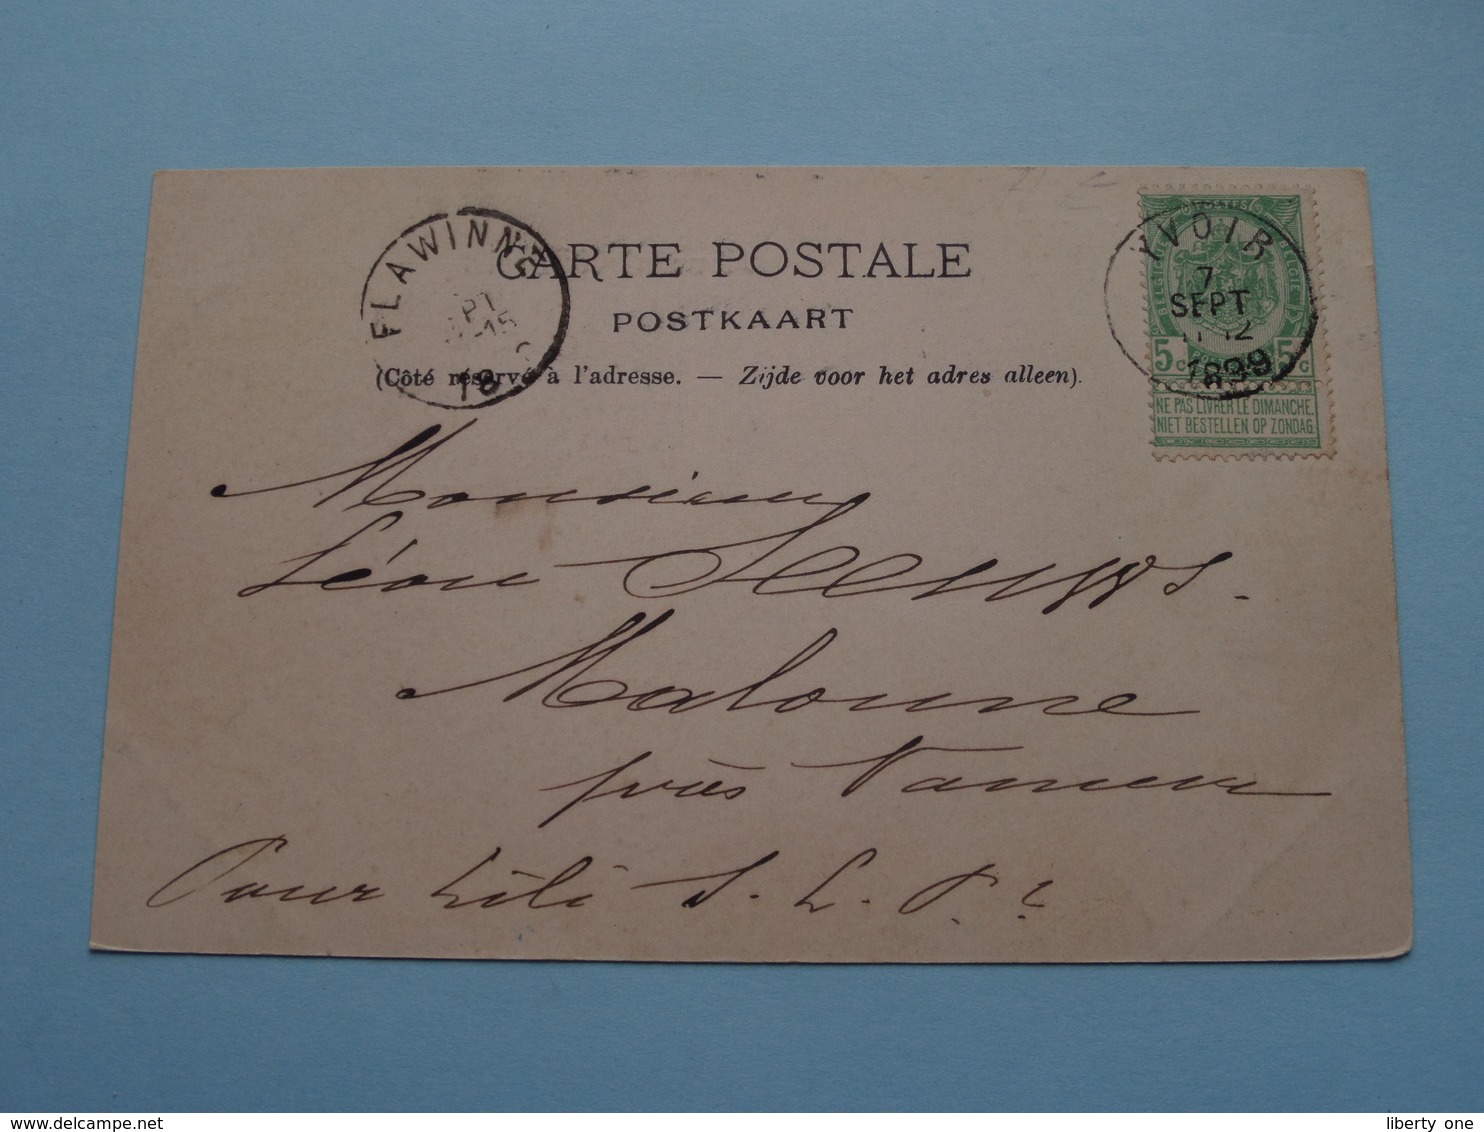 CARTE POSTALE
POSTKAART
(Côté réservé à l'adresse. — Zijde voor het adres alleen).
FLAWINNE
PT
15
18
YVOIR
7
SEPT
12
1899
5c 5c
NE PAS LIVRER LE DIMANCHE.
NIET BESTELLEN OP ZONDAG.
Monsieur
Léon
Malonne
près Namur
Pour Lili S. L. P.
liberty one